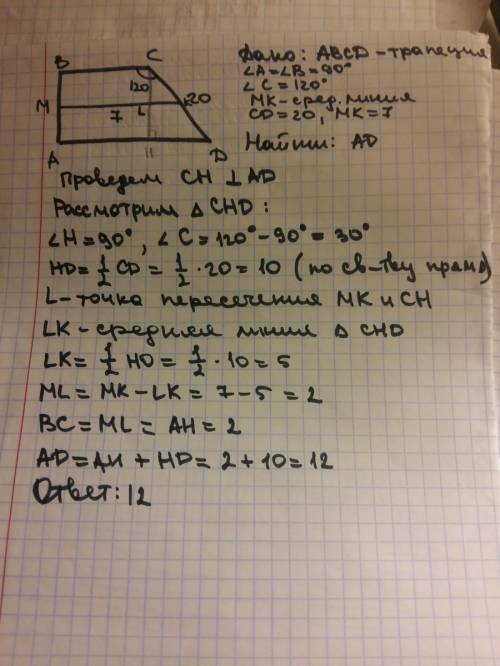 Дано: ABCD - трапеция
∠A=∠B=90°
∠C=120°
MK-сред. линия
CD=20, MK=7
Найти: AD
B
C
120
M
7
L
20
A
H
D
Проведем CH ⊥ AD
Рассмотрим △CHD:
∠H=90°, ∠C=120°-90°=30°
HD=1/2 CD=1/2·20=10 (по св-тву прям△)
L-точка пересечения MK и CH
LK-средняя линия △CHD
LK=1/2 HD=1/2·10=5
ML=MK-LK=7-5=2
BC=ML=AH=2
AD=AH+HD=2+10=12
Ответ: 12